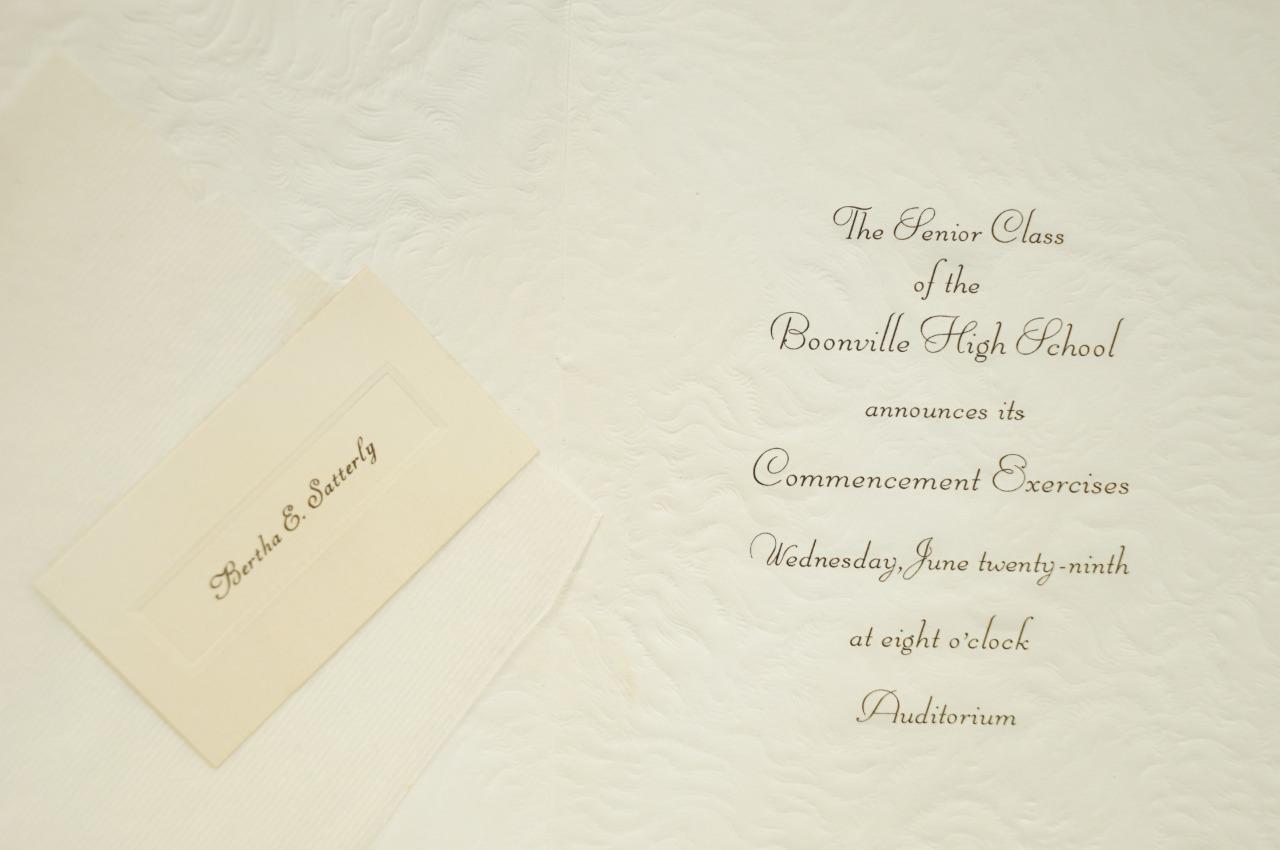 Bertha E. Satterly
The Senior Class
of the
Boonville High School
announces its
Commencement Exercises
Wednesday, June twenty-ninth
at eight o'clock
Auditorium